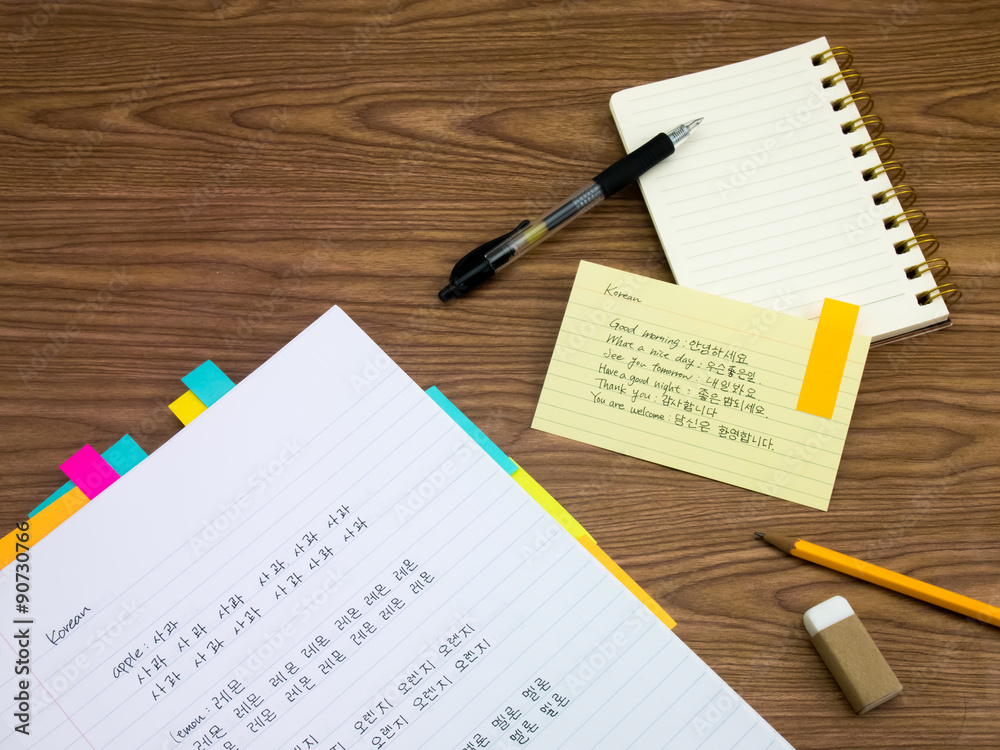 Korean
Good morning : 안녕하세요
What a nice day : 무슨좋은일.
See you tomorrow : 내일봐요.
Have a good night : 좋은밤되세요.
Thank you : 감사합니다
You are welcome : 당신은 환영합니다.
Korean
apple : 사과
사과 사과 사과 사과 사과 사과
사과 사과 사과 사과 사과 사과
lemon : 레몬
레몬 레몬 레몬 레몬 레몬 레몬 레몬
레몬 레몬 레몬 레몬 레몬 레몬
오렌지 오렌지 오렌지 오렌지
오렌지 오렌지 오렌지
멜론 멜론 멜론
멜론 멜론
Adobe Stock | #90730766